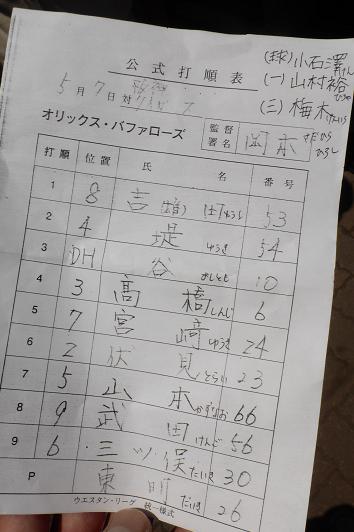 (球)小石澤けん
(一)山村裕ひろや
(三)梅木けんいち
公式打順表
5月7日対
オリックス・バファローズ
監督署名 岡本
打順 位置 氏 名 番号
1 8 吉(雄) 53
2 4 堤 ゆうき 54
3 DH 谷 よしとも 10
4 3 高橋 しんじ 6
5 7 宮﨑 ゆうき 24
6 2 伏見 とらい 23
7 5 山本 かずなお 66
8 9 武田 けんご 56
9 6 三ツ俣 たいき 30
P 東明 だいき 26
ウエスタン・リーグ 統一様式